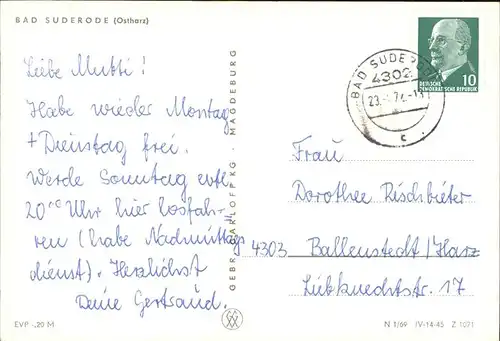 BAD SUDERODE (Ostharz)
Liebe Mutti!
Habe wieder Montag
+ Dienstag frei.
Werde Sonntag evtl.
20°° Uhr hier losfah-
ren (habe Nachmittags
dienst). Herzlichst
Deine Gertraud.
EVP -,20 M
GEBR. GARLOFF KG · MAGDEBURG
BAD SUDERODE
4302
23. 74-18
c
10
DEUTSCHE
DEMOKRATISCHE REPUBLIK
Frau
Dorothee Rischbieter
4303 Ballenstedt/Harz
Liebknechtstr. 17
N 1/69 IV-14-45 Z 1071